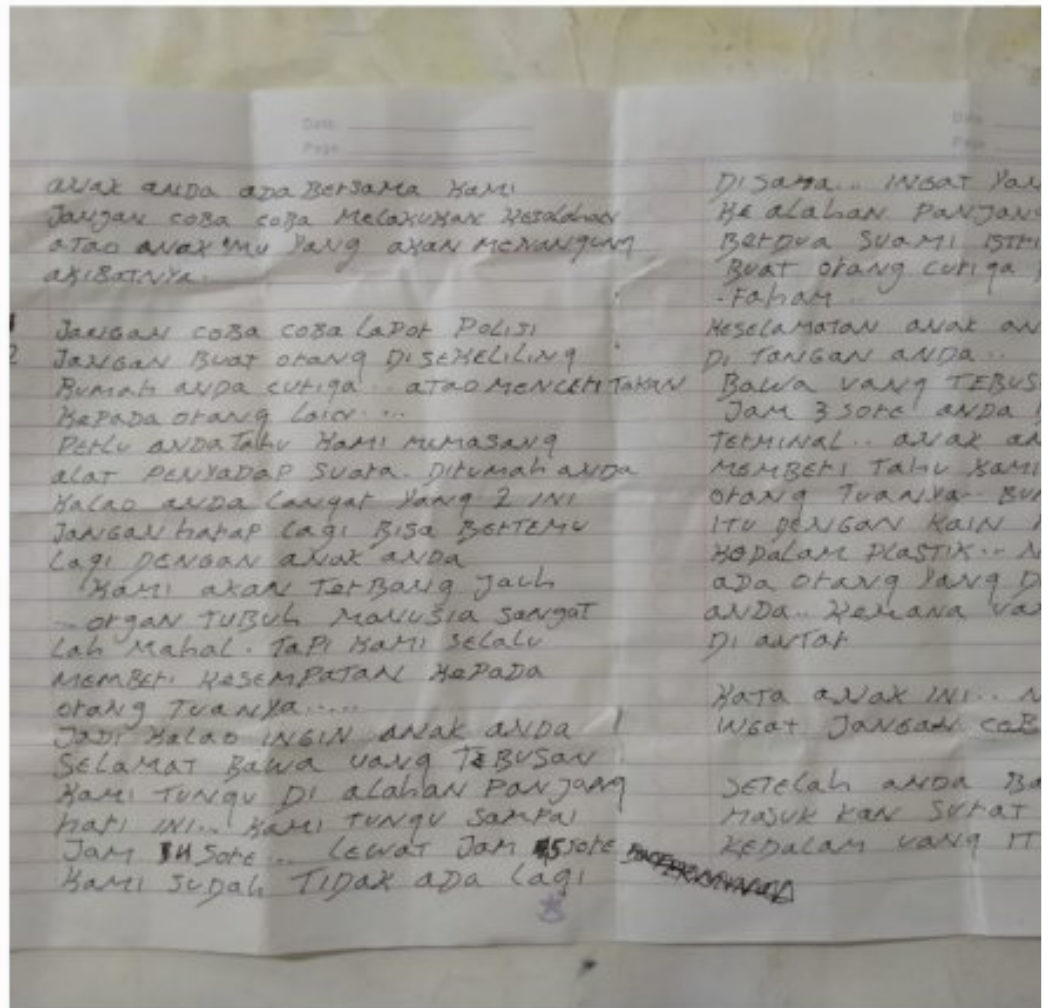 Date
Page
anak anda ada bersama kami
Jangan coba coba melakukan kesalahan
atao anak mu yang akan menangung
akibatnya.
Jangan coba coba lapor polisi
2 Jangan buat orang disekeliling
rumah anda curiga.. atao menceritakan
kepada orang lain...
Perlu anda tahu kami memasang
alat penyadap suara dirumah anda
kalao anda langar yang 2 ini
Jangan harap lagi bisa bertemu
lagi dengan anak anda
kami akan terbang jauh
..organ tubuh manusia sangat
lah mahal. tapi kami selalu
memberi kesempatan kepada
orang tuanya.....
Jadi kalao ingin anak anda
selamat bawa uang tebusan
kami tungu di alahan panjang
hari ini.. kami tungu sampai
Jam sore... lewat jam 5 sore
kami sudah tidak ada lagi
Date
Page
disana... ingat
ke alahan panjang
berdua suami
buat orang curiga
-faham..
keselamatan anak
di tangan anda..
bawa uang
Jam 3 sore anda
terminal.. anak
memberi tahu kami
orang tuanya..
itu dengan kain
kedalam plastik..
ada orang yang
anda.. kemana
di antar
kata anak ini..
ingat jangan
setelah anda
masuk kan surat
kedalam uang